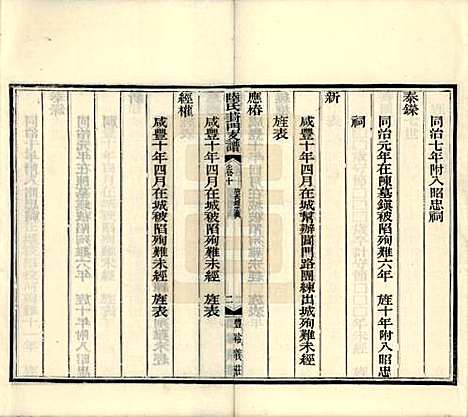 同治七年附入昭忠祠
泰鑅
同治元年在陳墓鎮被陷殉難六年　旌十年附入昭忠
祠
新
咸豐十年四月在城幫辦閶門路團練出城殉難未經
旌表
應椿
陸氏葑門支譜
卷十
二
豐裕義莊
咸豐十年四月在城被陷殉難未經　旌表
經權
咸豐十年四月在城被陷殉難未經　旌表